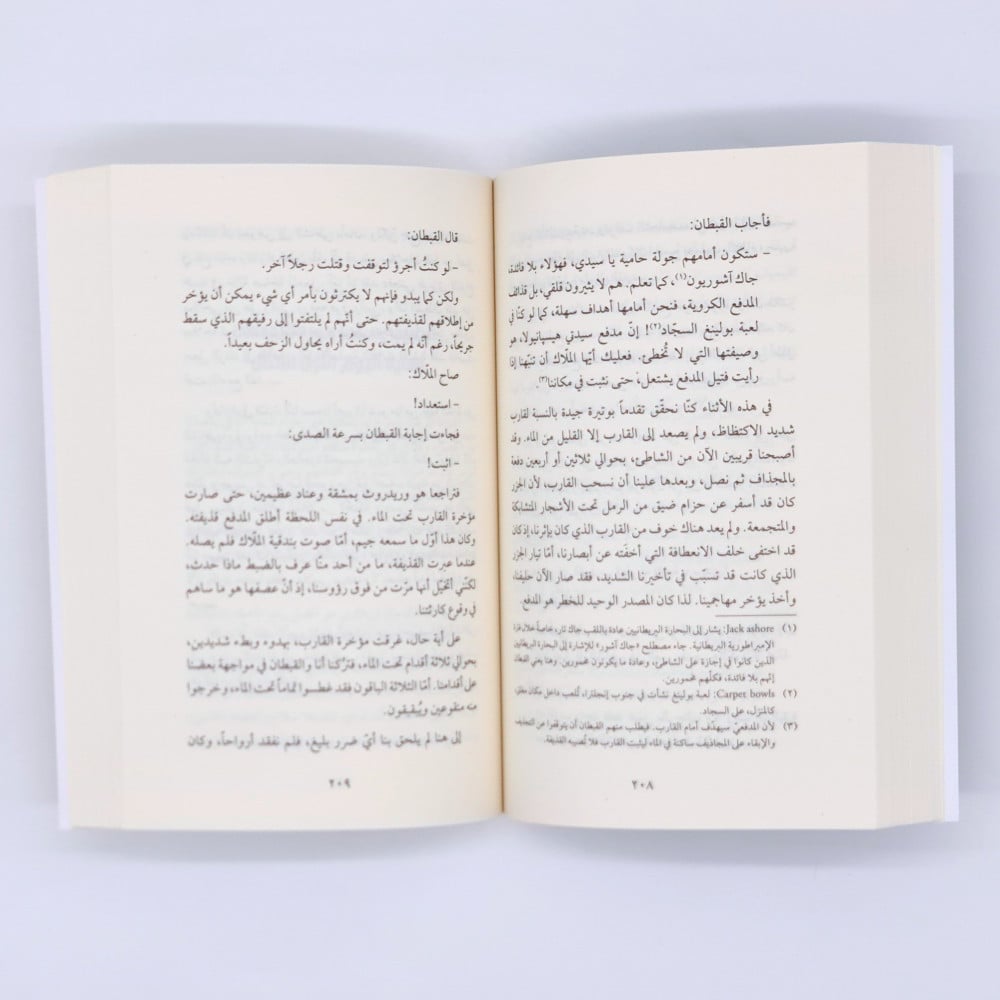 فأجاب القبطان:
– ستكون أمامهم جولة حامية يا سيدي، فهؤلاء بلا فائدة،
جاك آشوريون(١)، كما تعلم. هم لا يثيرون قلقي، بل قذائف
المدفع الكروية، فنحن أمامها أهداف سهلة، كما لو كنّا في
لعبة بولينغ السجّاد(٢)! إنّ مدفع سيدتي هيسپانيولا، هو
وصيفتها التي لا تُخطئ. فعليك أيّها الملّاك أن تنبّهنا إذا
رأيت فتيل المدفع يشتعل، حتى نثبت في مكاننا(٣).
في هذه الأثناء كنّا نحقّق تقدماً بوتيرة جيدة بالنسبة لقارب
شديد الاكتظاظ، ولم يصعد إلى القارب إلا القليل من الماء. وقد
أصبحنا قريبين الآن من الشاطئ، بحوالي ثلاثين أو أربعين دفعة
بالمجذاف ثم نصل، وبعدها علينا أن نسحب القارب، لأن الجزر
كان قد أسفر عن حزام ضيق من الرمل تحت الأشجار المتشابكة
والمتجمعة. ولم يعد هناك خوف من القارب الذي كان بإثرنا، إذ كان
قد اختفى خلف الانعطافة التي أخفَته عن أبصارنا، أمّا تيار الجزر
الذي كانت قد تسبّب في تأخيرنا الشديد، فقد صار الآن حليفنا،
وأخذ يؤخر مهاجمينا. لذا كان المصدر الوحيد للخطر هو المدفع.
(١) Jack ashore: يشار إلى البحارة البريطانيين عادة باللقب جاك تار، خاصةً خلال فترة
الإمبراطورية البريطانية. جاء مصطلح «جاك آشور» للإشارة إلى البحارة البريطانيين
الذين كانوا في إجازة على الشاطئ، وعادة ما يكونون مخمورين. وهنا يعني القبطان
إنهم بلا فائدة، فكلّهم مخمورون.
(٢) Carpet bowls: لعبة بولينغ نشأت في جنوب إنجلترا، تُلعب داخل مكان مغلق،
كالمنزل، على السجاد.
(٣) لأن المدفعيّ سيهدّف أمام القارب. فيطلب منهم القبطان أن يتوقفوا عن التجذيف
والإبقاء على المجاذيف ساكنة في الماء ليثبت القارب فلا تُصيبه القذيفة.
٢٠٨
قال القبطان:
– لو كنتُ أجرؤ لتوقفت وقتلت رجلاً آخر.
ولكن كما يبدو فإنهم لا يكترثون بأمر أي شيء يمكن أن يؤخر
من إطلاقهم لقذيفتهم. حتى أنّهم لم يلتفتوا إلى رفيقهم الذي سقط
جريحاً، رغم أنّه لم يمت، وكنتُ أراه يحاول الزحف بعيداً.
صاح الملّاك:
– استعداد!
فجاءت إجابة القبطان بسرعة الصدى:
– اثبت!
فتراجعا هو وريدروث بمشقة وعناد عظيمين، حتى صارت
مؤخرة القارب تحت الماء. في نفس اللحظة أطلق المدفع قذيفته.
وكان هذا أوّل ما سمعه جيم، أمّا صوت بندقية الملّاك فلم يصله.
عندما عبرت القذيفة، ما من أحد منّا عرف بالضبط ماذا حدث،
لكنّني أتخيّل أنها مرّت من فوق رؤوسنا، إذ أنّ عصفها هو ما ساهم
في وقوع كارثتنا.
على أية حال، غرقت مؤخرة القارب، بهدوء وبطء شديدين،
بحوالي ثلاثة أقدام تحت الماء، فتركنا أنا والقبطان في مواجهة بعضنا
على أقدامنا. أمّا الثلاثة الباقون فقد غطسوا تماماً تحت الماء، وخرجوا
منه منقوعين ويُبقبقون.
إلى هنا لم يلحق بنا أيّ ضرر بليغ، فلم نفقد أرواحاً، وكان
٢٠٩